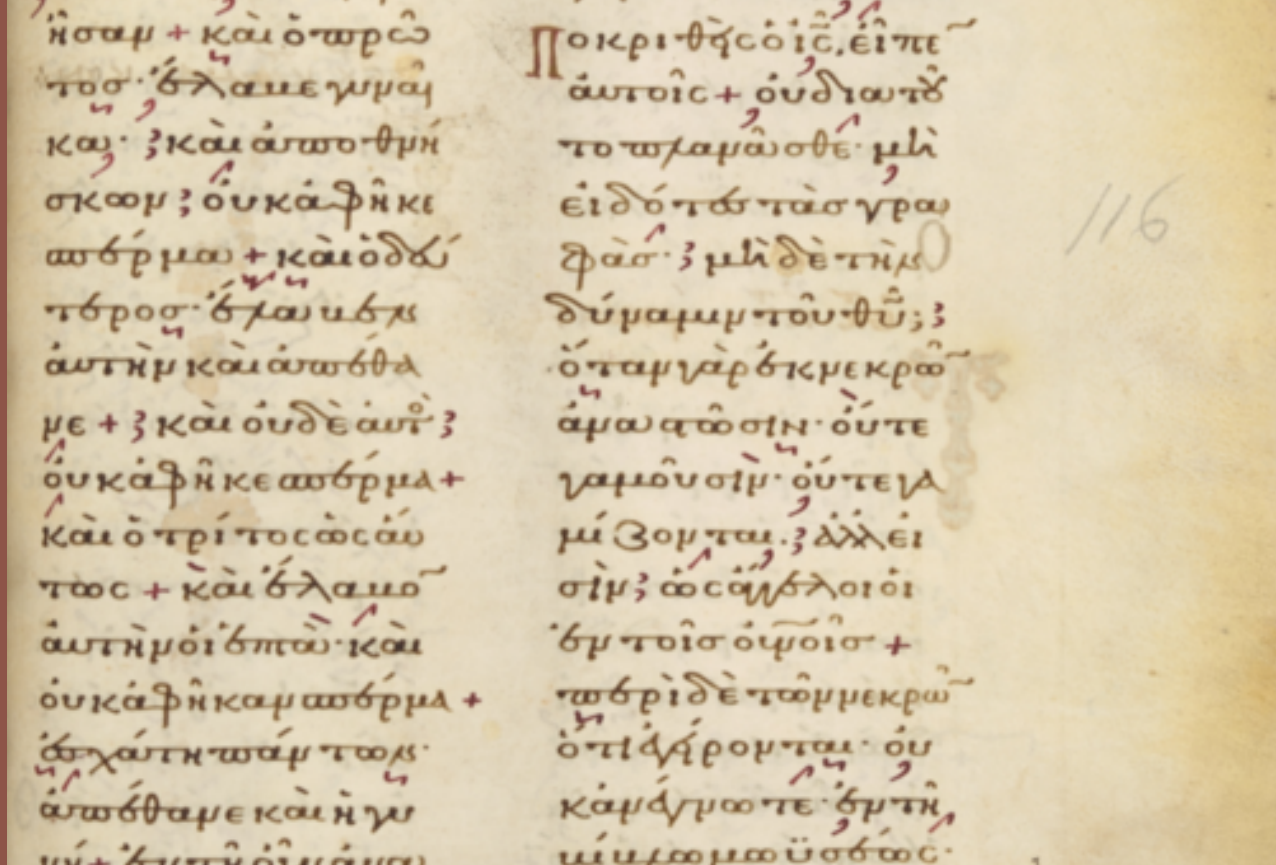 ἦσαν + καὶ ὁ πρῶ
τος· ἔλαβε γυναῖ
κα· καὶ ἀποθνή
σκων; οὐκ ἀφῆκε
σπέρμα + καὶ ὁ δεύ
τερος· ἔλαβεν
αὐτὴν καὶ ἀπέθα
νε + καὶ οὐδὲ αὐτὸ
οὐκ ἀφῆκε σπέρμα +
καὶ ὁ τρίτος ὡσαύ
τως + καὶ ἔλαβο̅
αὐτὴν οἱ ἑπτὰ· καὶ
οὐκ ἀφῆκαν σπέρμα +
ἐσχάτη πάντων·
ἀπέθανε καὶ ἡ γυ
νή + ἐν τῇ οὖν ἀνα
ποκριθῆς ὁ ις̅. εἶπε̅
αὐτοῖς + οὐ διατοῦ
το πλανᾶσθε· μὴ
εἰδότες τὰς γρα
φὰς· μὴ δὲ τὴν
δύναμιν τοῦ θυ̅;
ὅταν γὰρ ἐκ νεκρῶ̅
ἀναστῶσιν· οὔτε
γαμοῦσιν· οὔτε γα
μίζονται. ἀλλ εἰ
σὶν; ὡς ἄγγελοι οἱ
ἐν τοῖς οὐ̅νοῖς +
περὶ δὲ τῶν νεκρῶ̅
ὅτι ἐγείρονται· οὐ
κ ἀνέγνωτε· ἐν τῇ
βίβλω μωϋσέως·
116